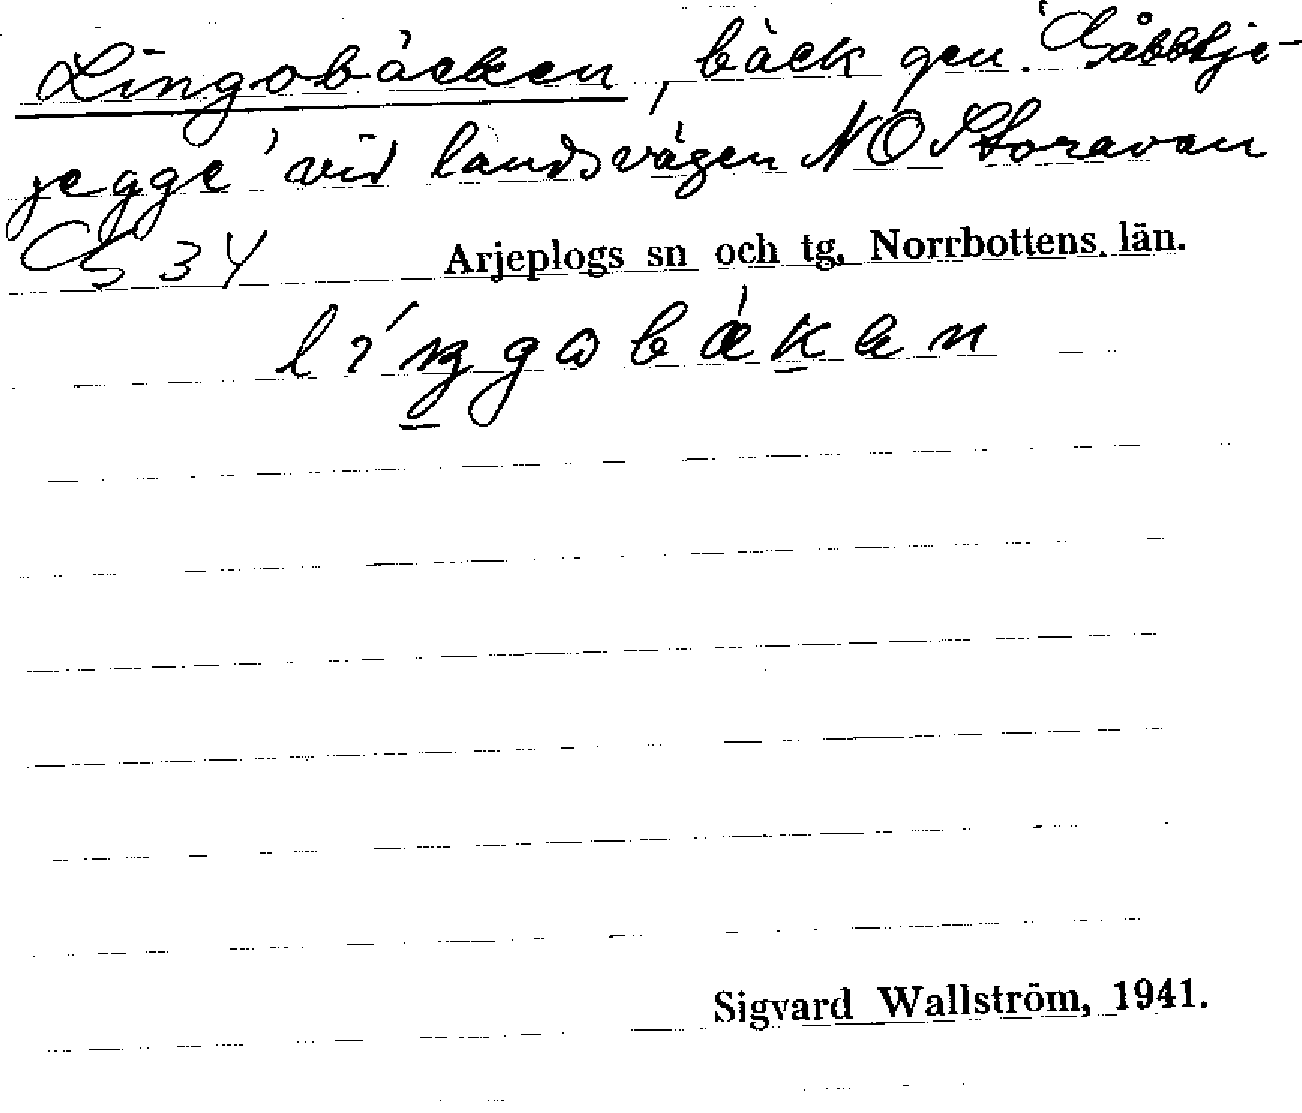 Lingobäcken, bäck gen. 'Gåbbtje-
jegge' vid landsvägen NO Storavan
G 34 Arjeplogs sn och tg, Norrbottens. län.
líŋgobäkan
Sigvard Wallström, 1941.